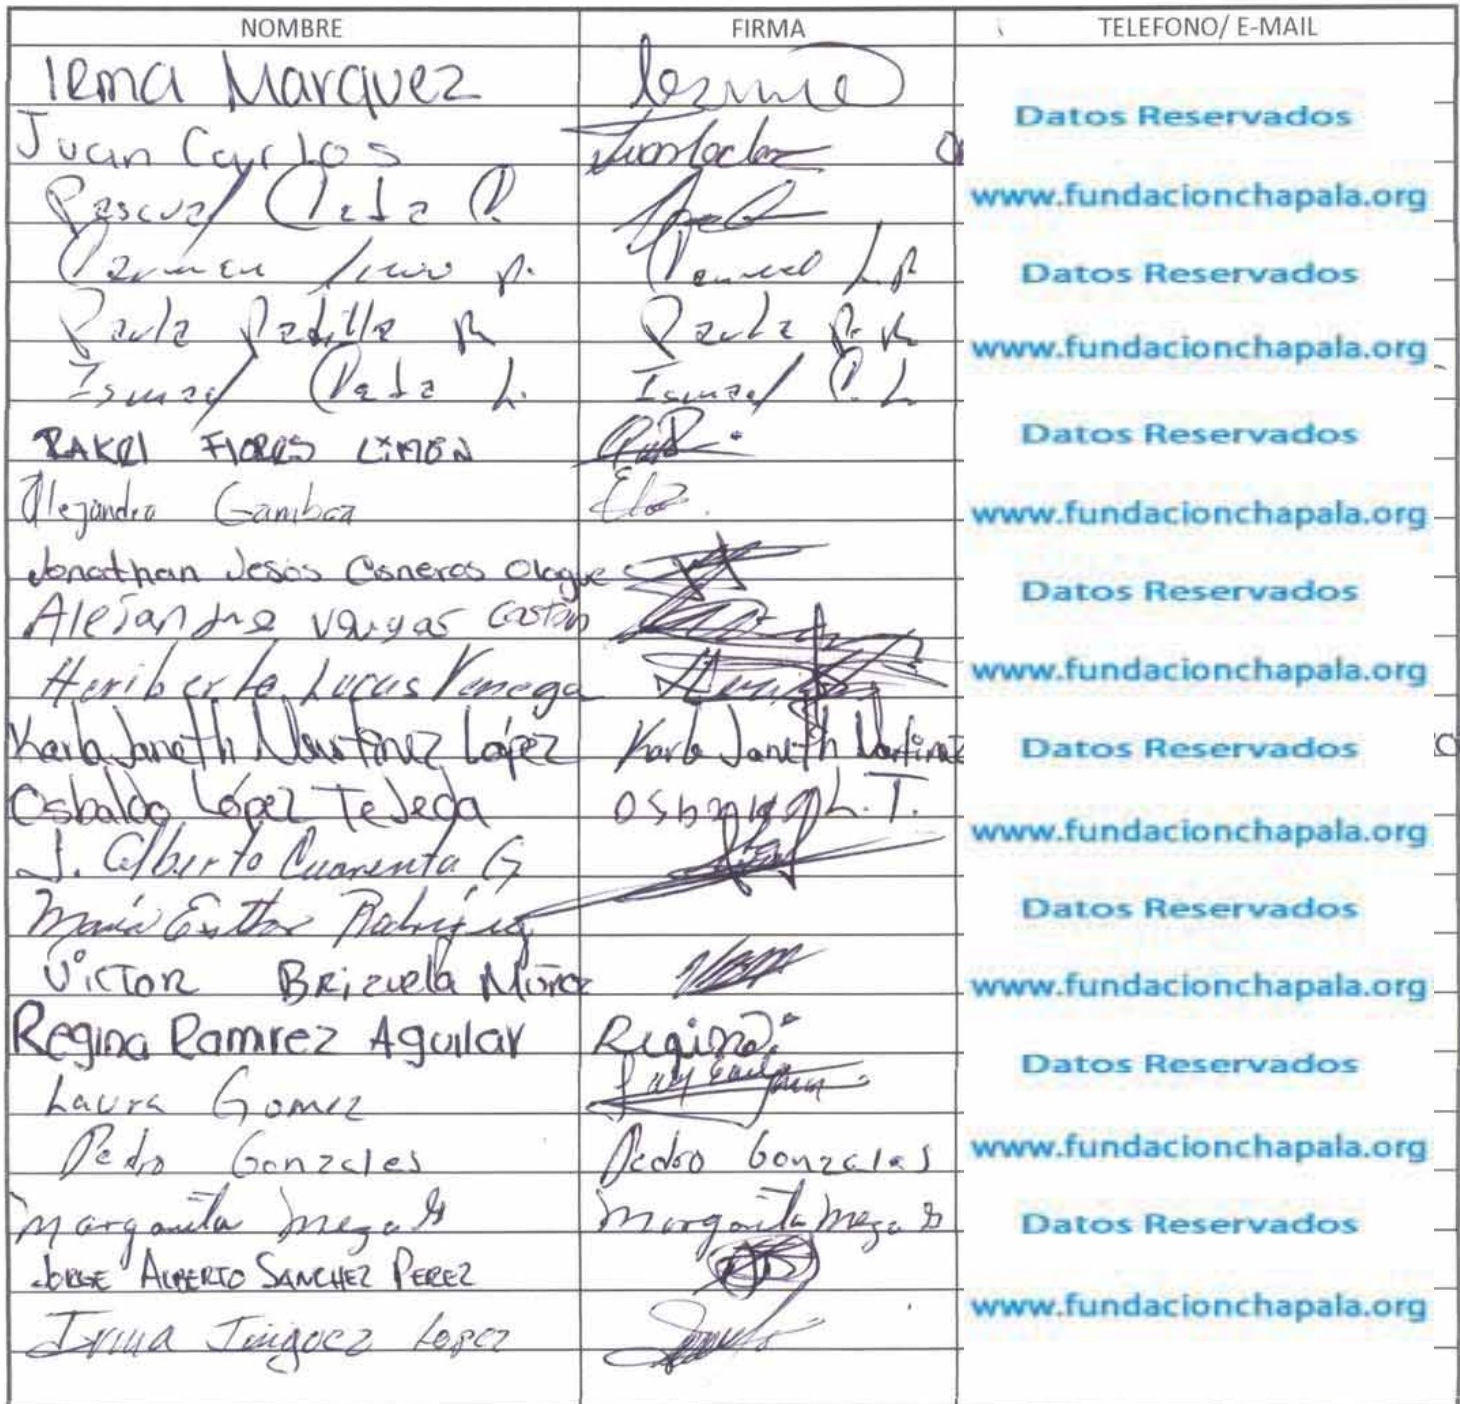 NOMBRE FIRMA TELEFONO/ E-MAIL
Irma Marquez
Datos Reservados
Juan Carlos
Pascual P.
www.fundacionchapala.org
Carmen
Datos Reservados
Paula Padilla R Paula P. R
www.fundacionchapala.org
Ismael L. Ismael L
RAKEl FlORES LiMON
Datos Reservados
Alejandra Gamboa
www.fundacionchapala.org
Jonathan Jesús Cisneros Olague
Datos Reservados
Alejandra Vargas
Heriberto Lucas Venega
www.fundacionchapala.org
Karla Janeth Martinez López Karla Janeth Martinez
Datos Reservados
Osbaldo López Tejeda Osbaldo L. T.
www.fundacionchapala.org
J. Alberto Cuarenta G
María Esther
Datos Reservados
Victor Brizuela Muñoz
www.fundacionchapala.org
Regina Ramirez Aguilar Regina
Datos Reservados
Laura Gomez
Pedro Gonzales Pedro Gonzales
www.fundacionchapala.org
Margarita Meza Margarita Meza
Datos Reservados
JORGE ALBERTO SANCHEZ PEREZ
www.fundacionchapala.org
Irma Iñiguez Lopez